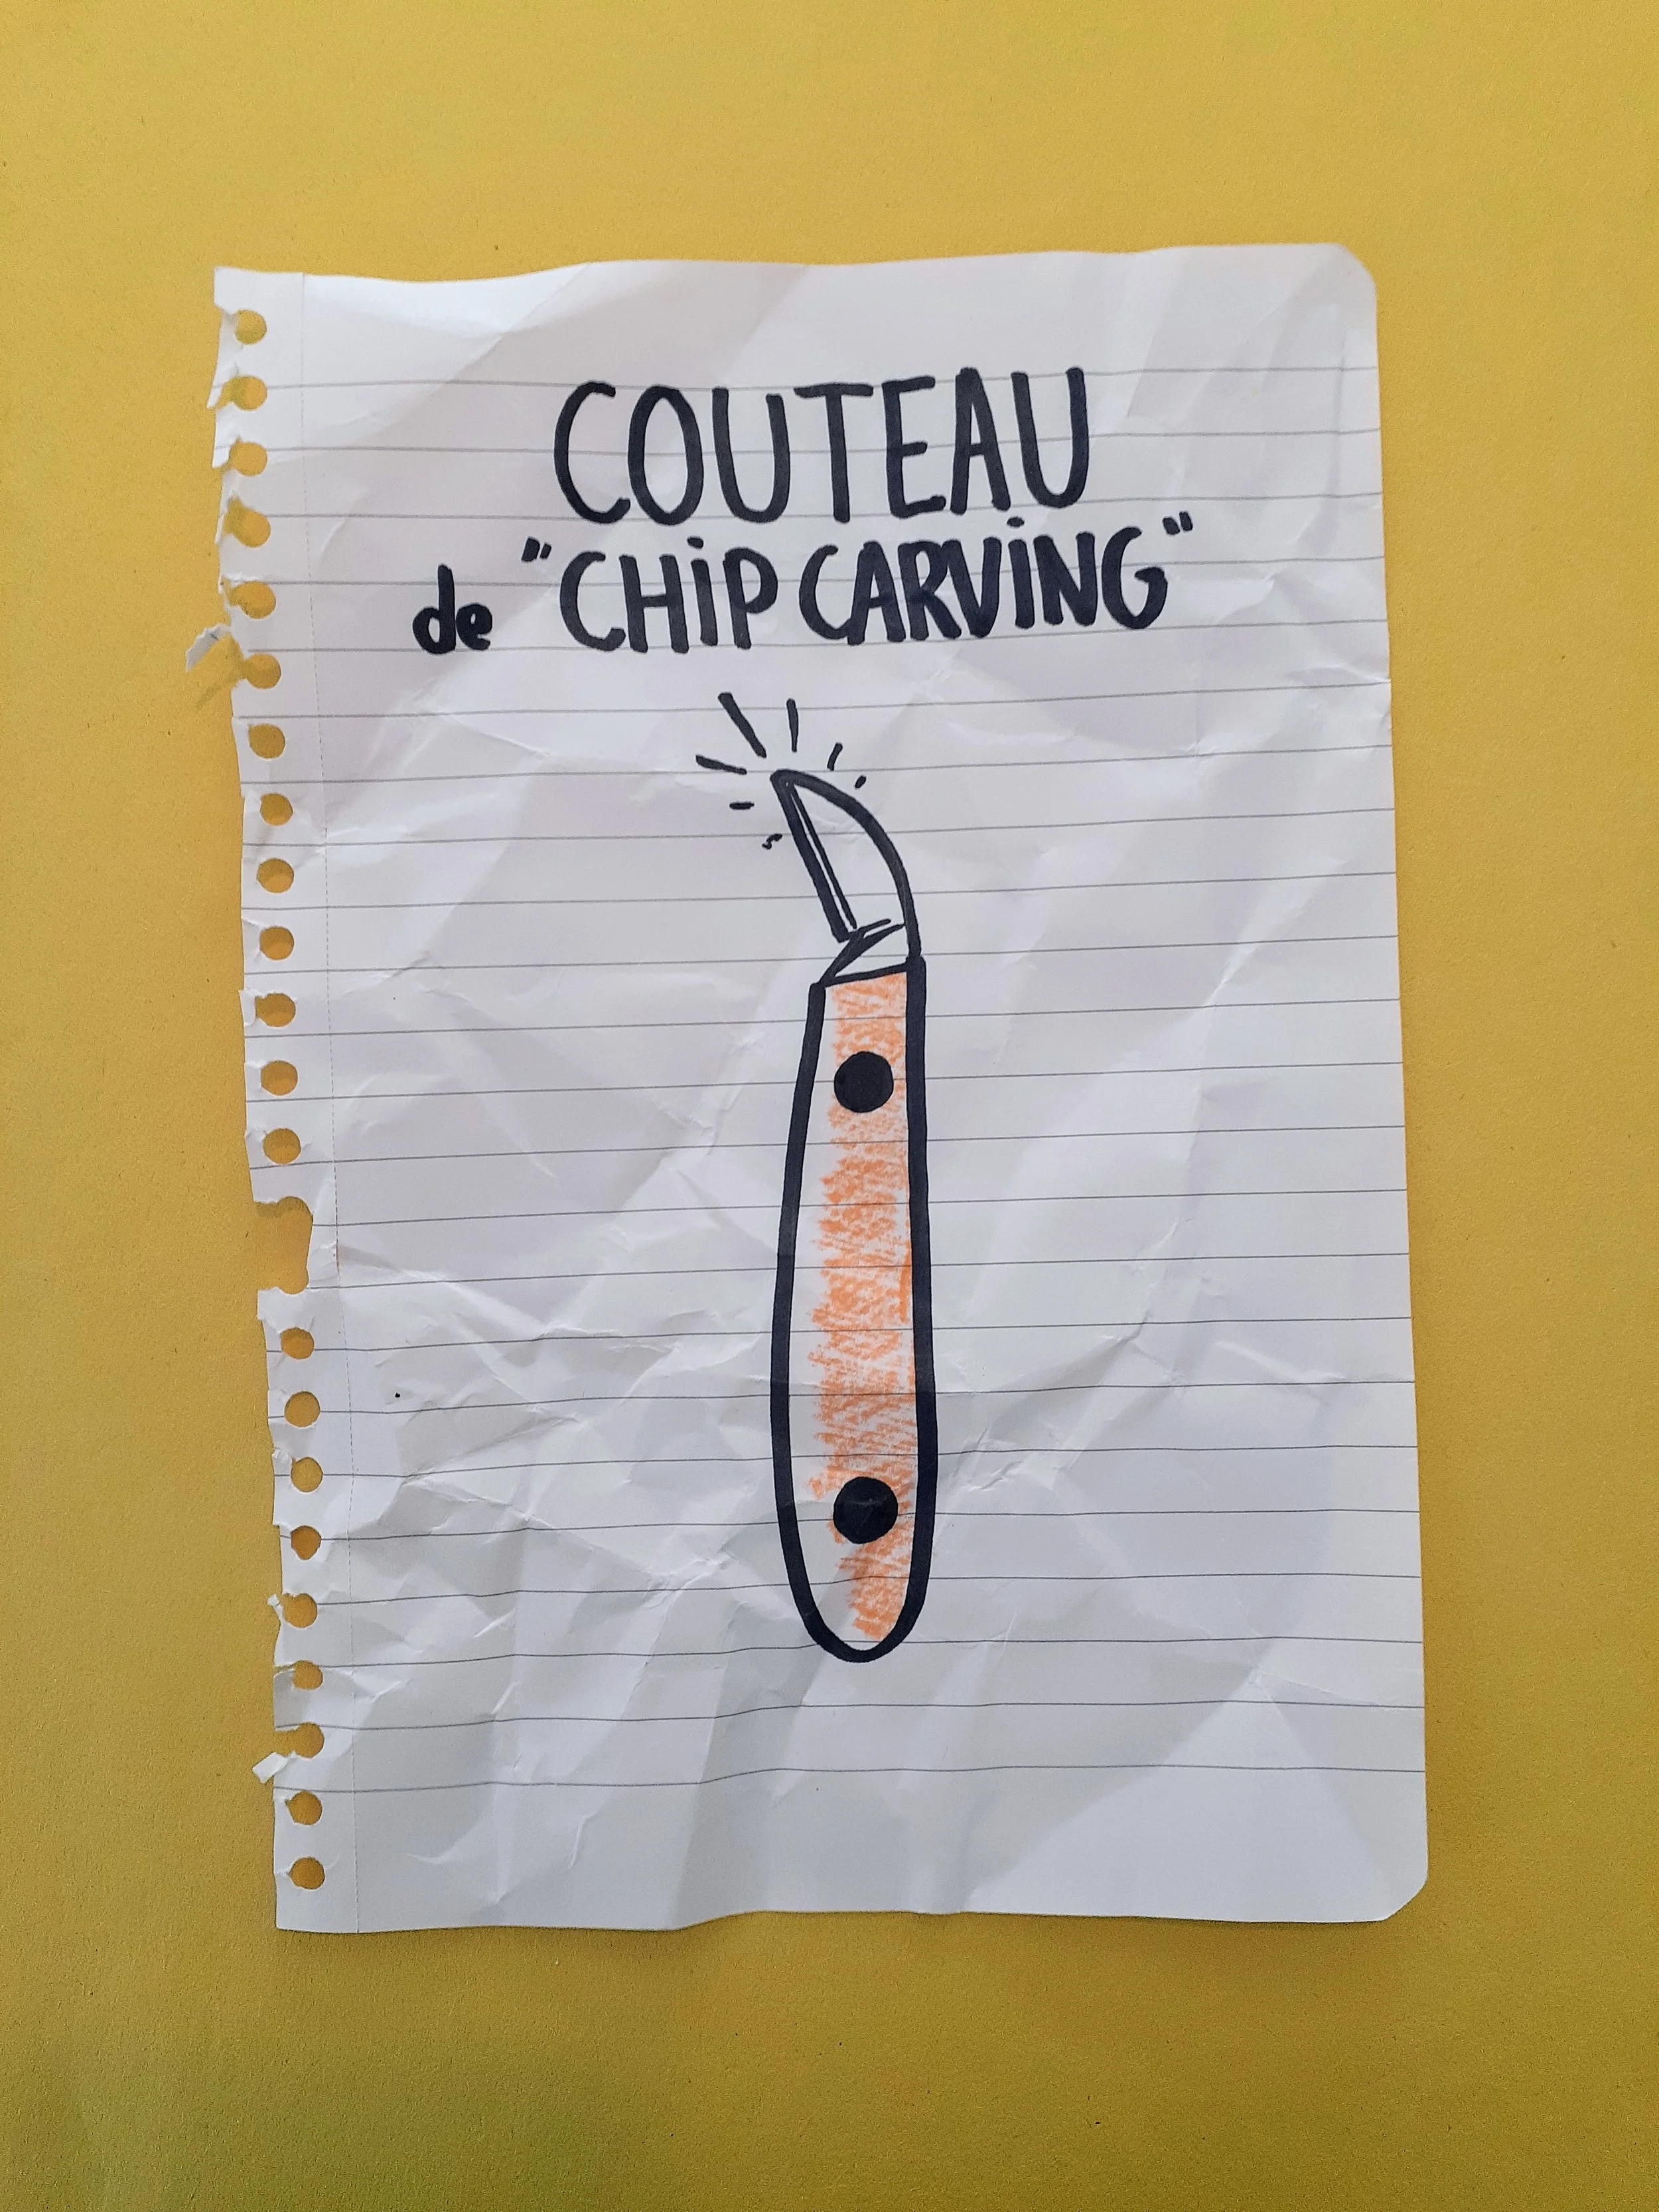 COUTEAU
de "CHiP CARViNG"